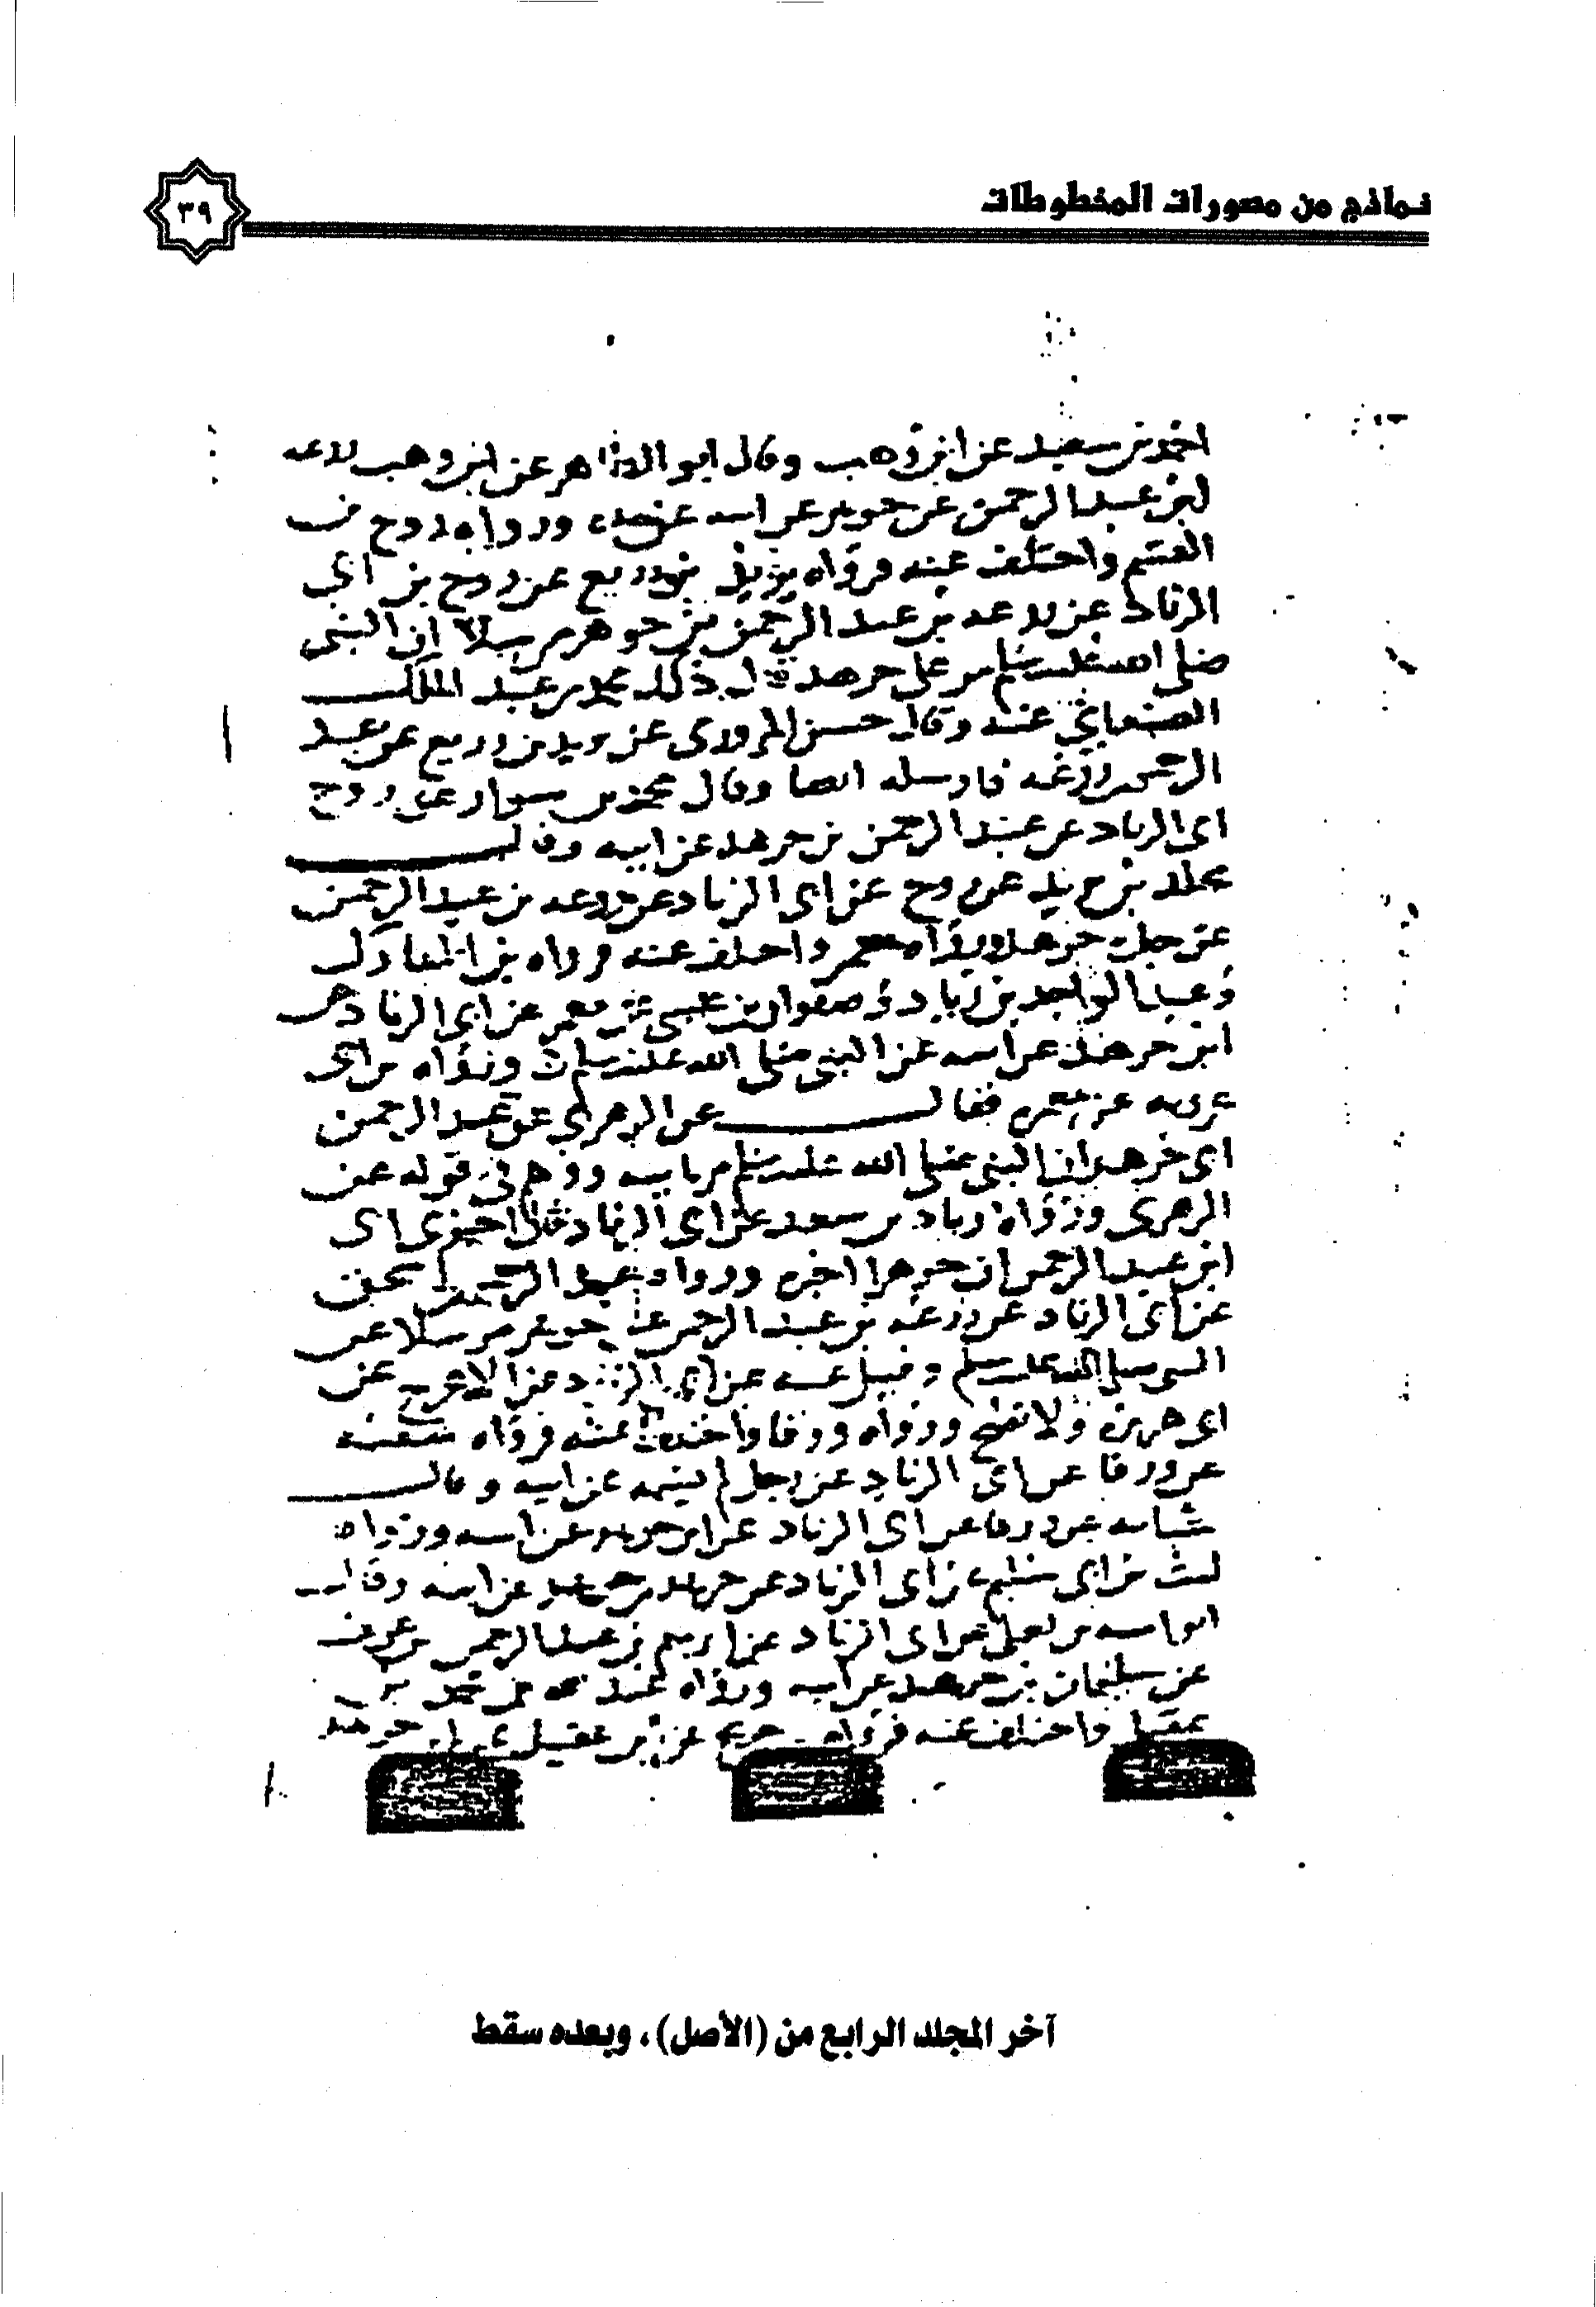 نماذج من مصورات المخطوطات
٣٩
احمد بن سعيد عن ابن وهب وقال ابو الطاهر عن ابن وهب زرعه
ابن عبد الرحمن عن جرهد عن ابيه عن جده ورواه روح بن
القسم واختلف عنه فرواه يزيد بن زريع عن روح بن ابي
الزناد عن زرعه بن عبد الرحمن بن جرهد مرسلا ان النبي
صلى الله عليه وسلم مر على جرهد قال ذلك محمد بن عبد الملك
الصنعاني عنه وقال حسن المروزي عن يزيد بن زريع عن عبد
الرحمن بن زرعه فارسله ايضا وقال محمد بن سوار عن روح
ابي الزناد عن عبد الرحمن بن جرهد عن ابيه وقال
مخلد بن يزيد عن روح عن ابي الزناد عن زرعه بن عبد الرحمن
عن جده جرهد ورواه معمر واختلف عنه فرواه بن المبارك
وعبد الواحد بن زياد وصفوان بن عيسى عن معمر عن ابي الزناد عن
ابن جرهد عن ابيه عن النبي صلى الله عليه وسلم ورواه بن ابي
عروبه عن معمر فقال عن الزهري عن عبد الرحمن
ابي جرهد ان النبي صلى الله عليه وسلم مر بابيه ووهم في قوله عن
الزهري ورواه زياد بن سعد عن ابي الزناد قال اخبرني ابي
ابن عبد الرحمن ان جرهدا اخبره ورواه عبد الرحمن اسحق
عن ابي الزناد عن زرعه بن عبد الرحمن عن جرهد مرسلا عن
النبي صلى الله عليه وسلم وقيل عنه عن ابي الزناد عن الاعرج عن
ابي هريره ولا يصح ورواه ورقا واختلف عنه فرواه شعبه
عن ورقا عن ابي الزناد عن رجل لم يسمه عن ابيه وقال
شبابه عن ورقا عن ابي الزناد عن ابن جرهد عن ابيه ورواه
ليث بن ابي سليم عن ابي الزناد عن جرهد بن جرهد عن ابيه وقال
ابو اميه بن يعلى عن ابي الزناد عن ابرهيم بن عبد الرحمن بن عوف
عن سليمان بن جرهد عن ابيه ورواه عبد الله بن محمد بن
عقيل واختلف عنه فرواه جريج عن بن عقيل جرهد
آخر المجلد الرابع من (الأصل)، وبعده سقط